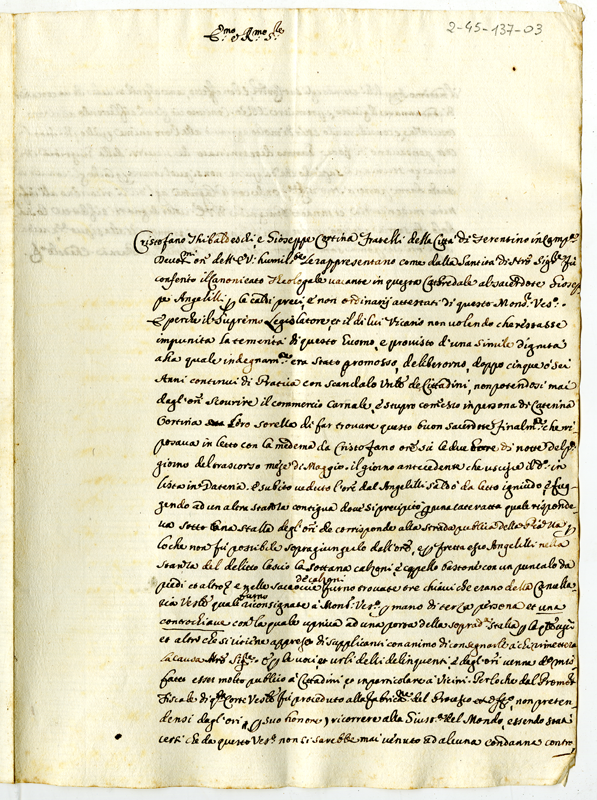 2-45-137-03
E.mo e R.mo S.re
Cristofano Thibaldeschi, e Gioseppe Cortina Fratelli della Città di Ferentino in Camp.a
Devot.mi ori dell'E.V. humilm.te le rappresentano come dalla Santità di Nro Sig.re fù
conferito il Canonicato Theologale vacante in questa Catedrale al Sacerdote Giosep
pe Angelilli p le caldi preci, e non ordinarij attestati di questo Mons.r Ves.o.
E perche il Supremo Legislatore et il di lui Vicario non volendo che restasse
impunita la temerità di questo huomo, e provisto d'una simile dignità
alla quale indegnam.te era stato promosso, deliberorno, doppo cinque o sei
Anni continui di Pratica con scandalo de Cittadini, non potendosi mai
dagl'ori scourire il commercio Carnale, e stupro com̃esso in persona di Caterina
Cortina loro sorella di far trovare questo buon Sacerdote finalm.te che ri
posava in letto con la medema da Cristofano ore sù le due di notte del p.o
giorno del trascorso mese di Maggio, il giorno antecedente che uscisse il d.o in
lista in Dataria. E subito veduto l'ore dal Angelilli saldò da letto igniudo, e fug
gendo ad un altra stantia contigua dove si precipitò p una cateratta quale risponde
va sotto una Stalla degl'ori che corrisponde alla strada publica p
lo che non fù possibile sopragiungerlo dall'ore, e p fretta esso Angelilli nella
stantia del delitto lasciò la sottana calzoni, e cappello bastone con un puntalo da
piedi et altro, e nelle saccoccie de calzoni furno trovate tre chiavi che erano della Cancella
ria Vesle quali furno riconsignate à Mons.r Ves.o p mano di terza persona et una
controchiave con la quale apriva ad una porta della soprad.a stalla
et altro che si ritiene appresso di supplicanti con animo di consegnarlo à chi
la causa Nro Sig.re E p la voci et urli delli delinquenti e dagl'ori vanne
fatto esser molto publico à Cittadini, et in particolare à Vicini. Per lo che dal Promot.r
Fiscale di q.sta Corte Vesle fù proceduto alla fabrica del Processo, non preten
densi dagl'ori p suo honore ricorrere alla Giust.a del Mondo, essendo stati
certi che da questo Ves.o non ci sarebbe mai venuto ad alcuna condanna contro